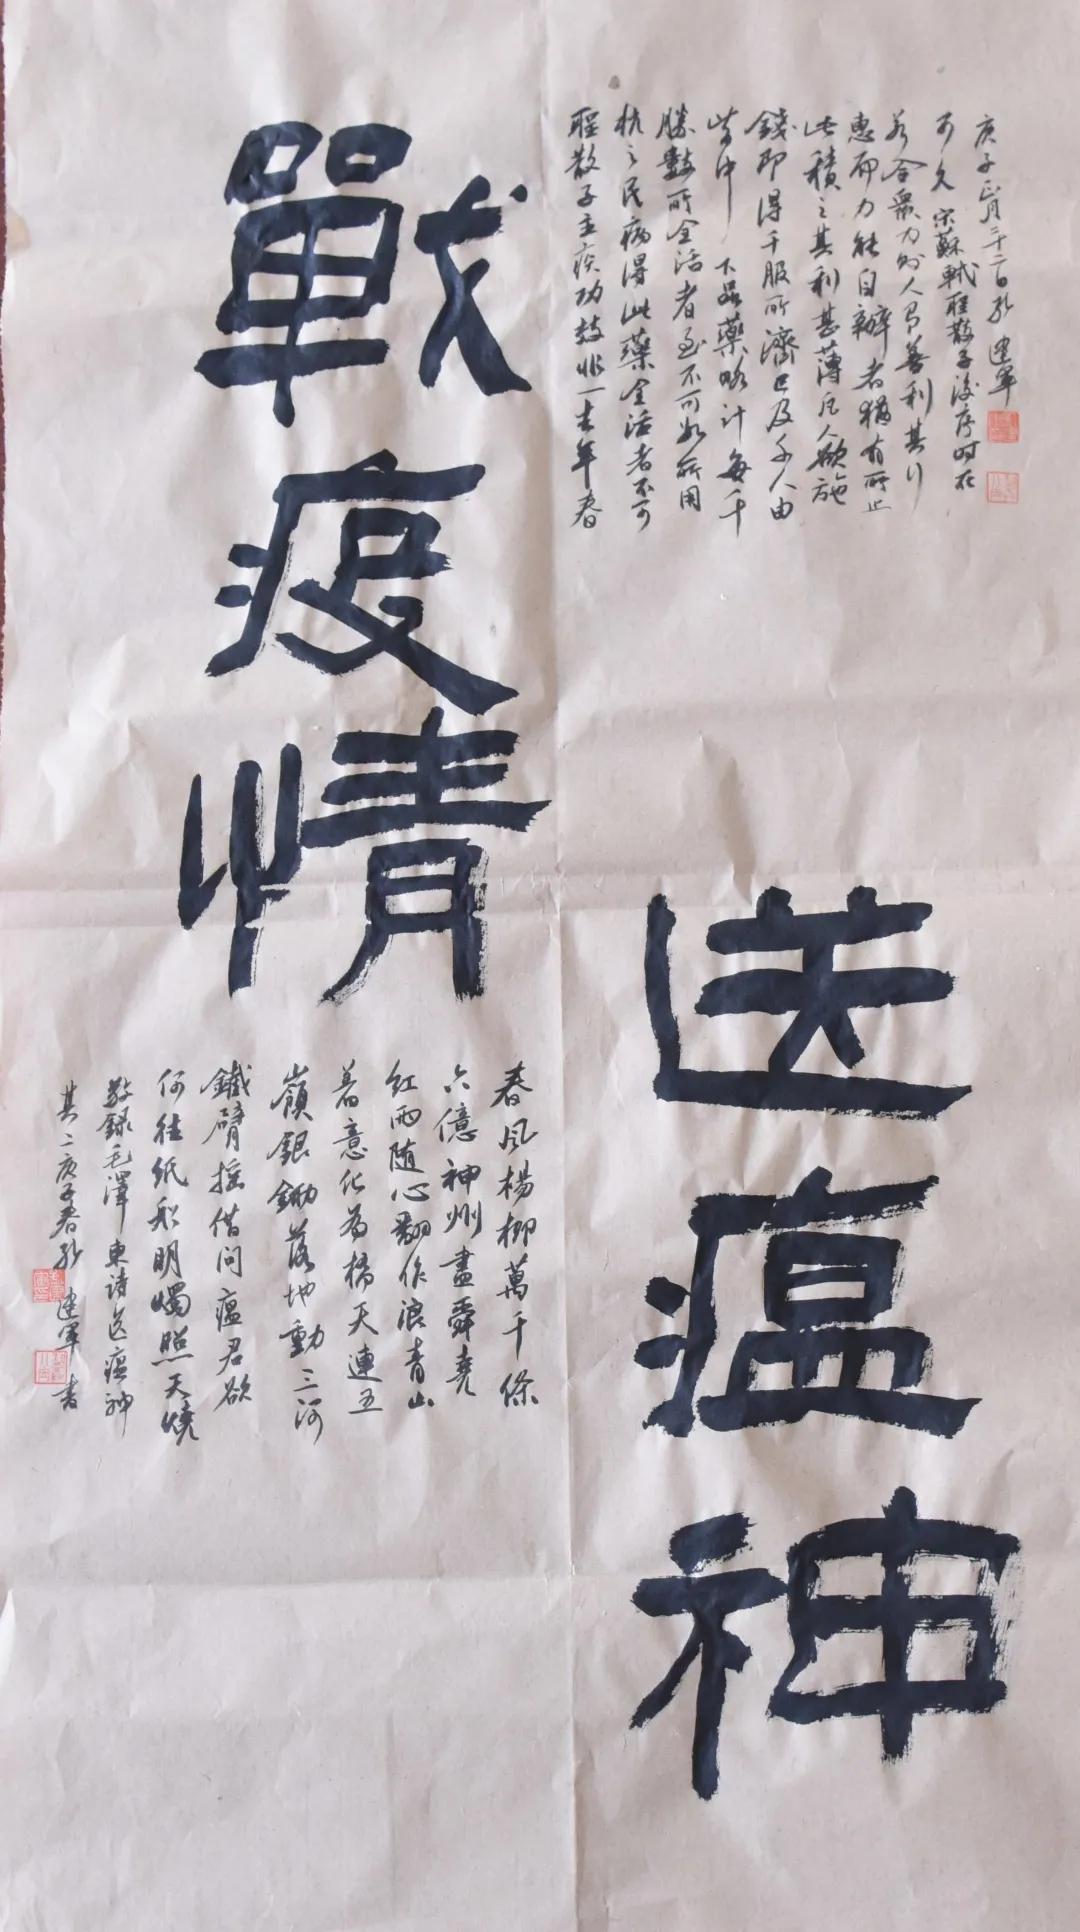 戰疫情
送瘟神
聖散子主疾功效非一去年春
杭之民病得此藥全活者不可
勝數所全活者至不可數所用
皆中下品藥略計每千
錢即得千服所濟已及千人由
此積之其利甚薄凡人欲施
惠而力能自辦者猶有所止
若合眾力則人有善利其行
可久 宋蘇軾聖散子後序時在
庚子正月二十二日 建軍
春風楊柳萬千條
六億神州盡舜堯
紅雨随心翻作浪青山
着意化為橋天連五
嶺銀鋤落地動三河
鐵臂摇借問瘟君欲
何往紙船明燭照天燒
敬録毛澤東詩送瘟神
其二庚子春 建軍書